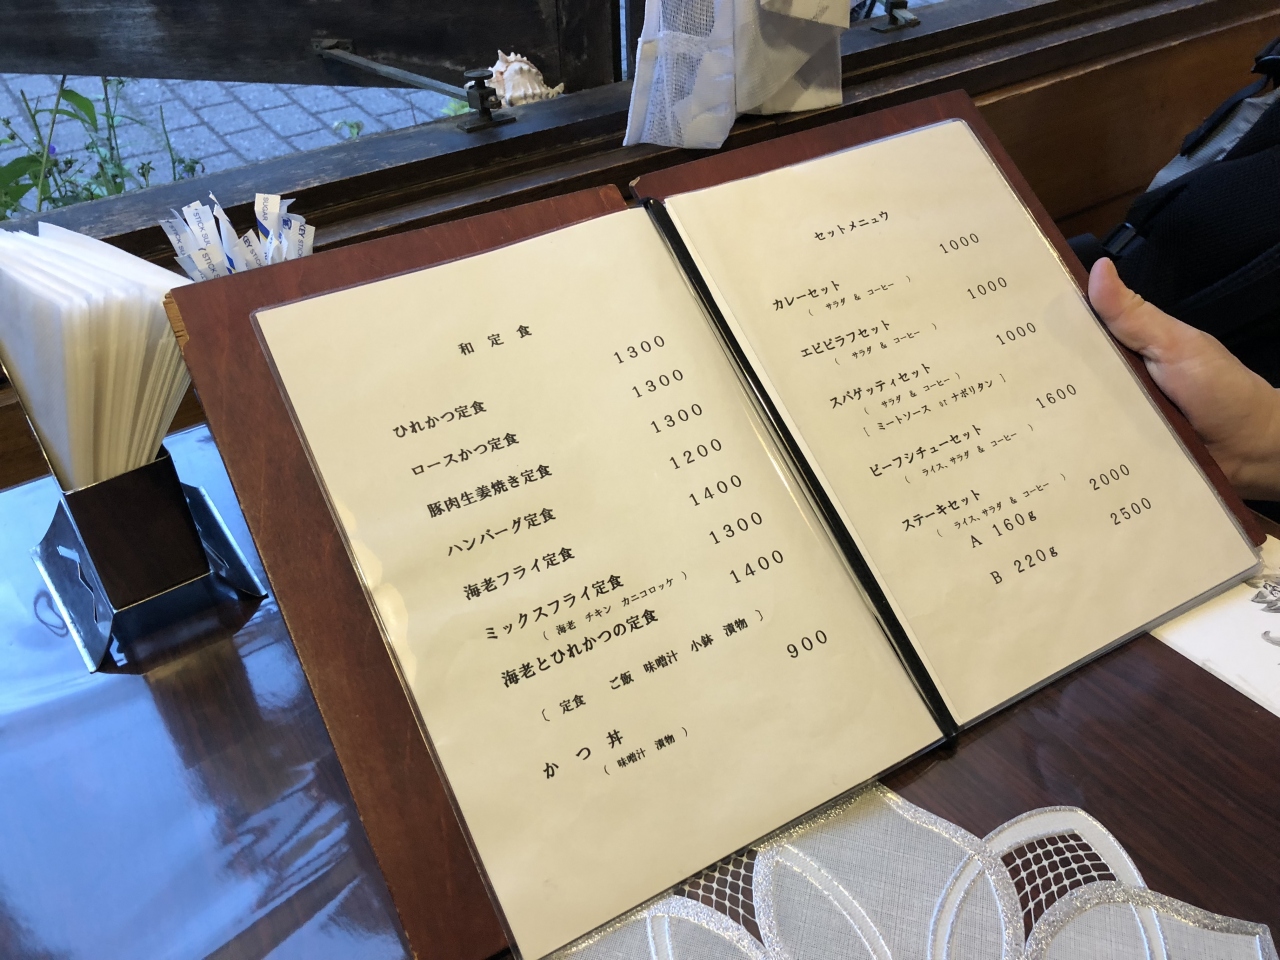 和定食
ひれかつ定食 1300
ロースかつ定食 1300
豚肉生姜焼き定食 1300
ハンバーグ定食 1200
海老フライ定食 1400
ミックスフライ定食 1300
( 海老 チキン カニコロッケ )
海老とひれかつの定食 1400
( 定食 ご飯 味噌汁 小鉢 漬物 )
かつ丼 900
( 味噌汁 漬物 )
セットメニュウ
カレーセット 1000
( サラダ & コーヒー )
エビピラフセット 1000
( サラダ & コーヒー )
スパゲッティセット 1000
( サラダ & コーヒー )
( ミートソース or ナポリタン )
ビーフシチューセット 1600
( ライス、サラダ & コーヒー )
ステーキセット
( ライス、サラダ & コーヒー )
A 160g 2000
B 220g 2500
STICK SU
SUGAR
KEY STICK